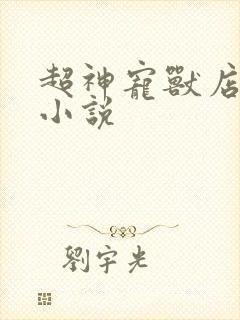 超神寵獸店
小說
劉宇光